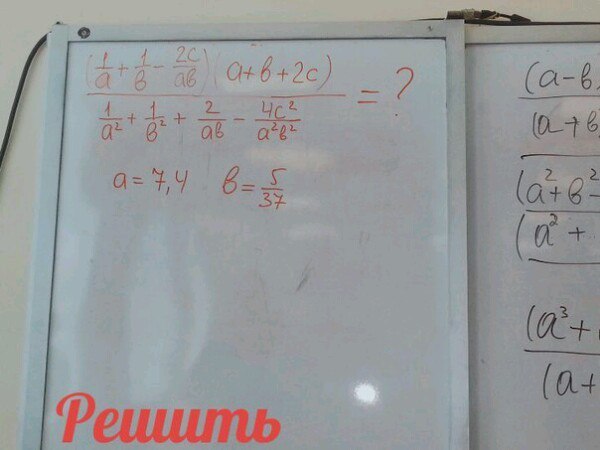 (1/a + 1/в - 2c/aв)(a+в+2c)
1/a² + 1/в² + 2/aв - 4c²/a²в²
= ?
a = 7,4 в = 5/37
(a-в
(a+в
(a²+в²-
(a²+
(a³+
(a+
Решить